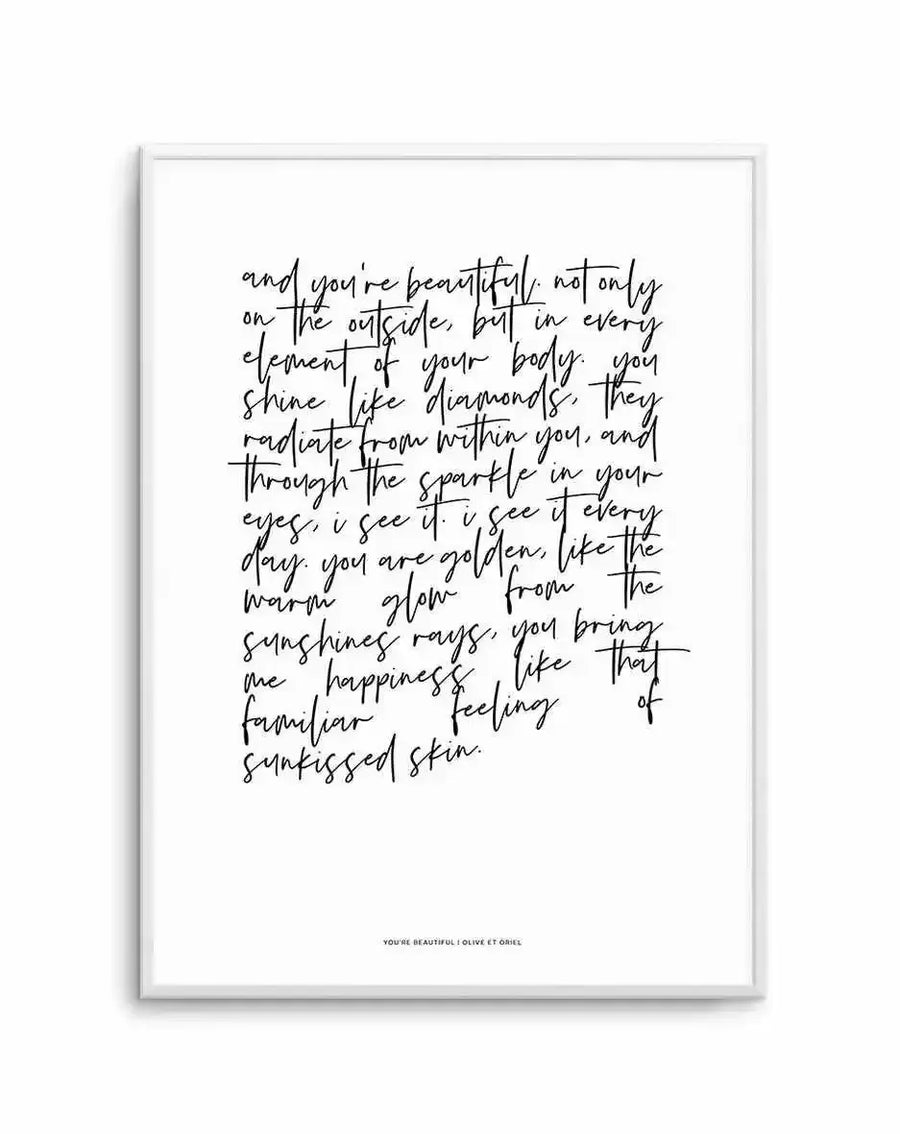 and you're beautiful. not only
on the outside, but in every
element of your body. you
shine like diamonds, they
radiate from within you, and
through the sparkle in your
eyes, i see it. i see it every
day. you are golden, like the
warm glow from the
sunshines rays, you bring
me happiness like that
familiar feeling of
sunkissed skin.
YOU'RE BEAUTIFUL | OLIVE ET ORIEL